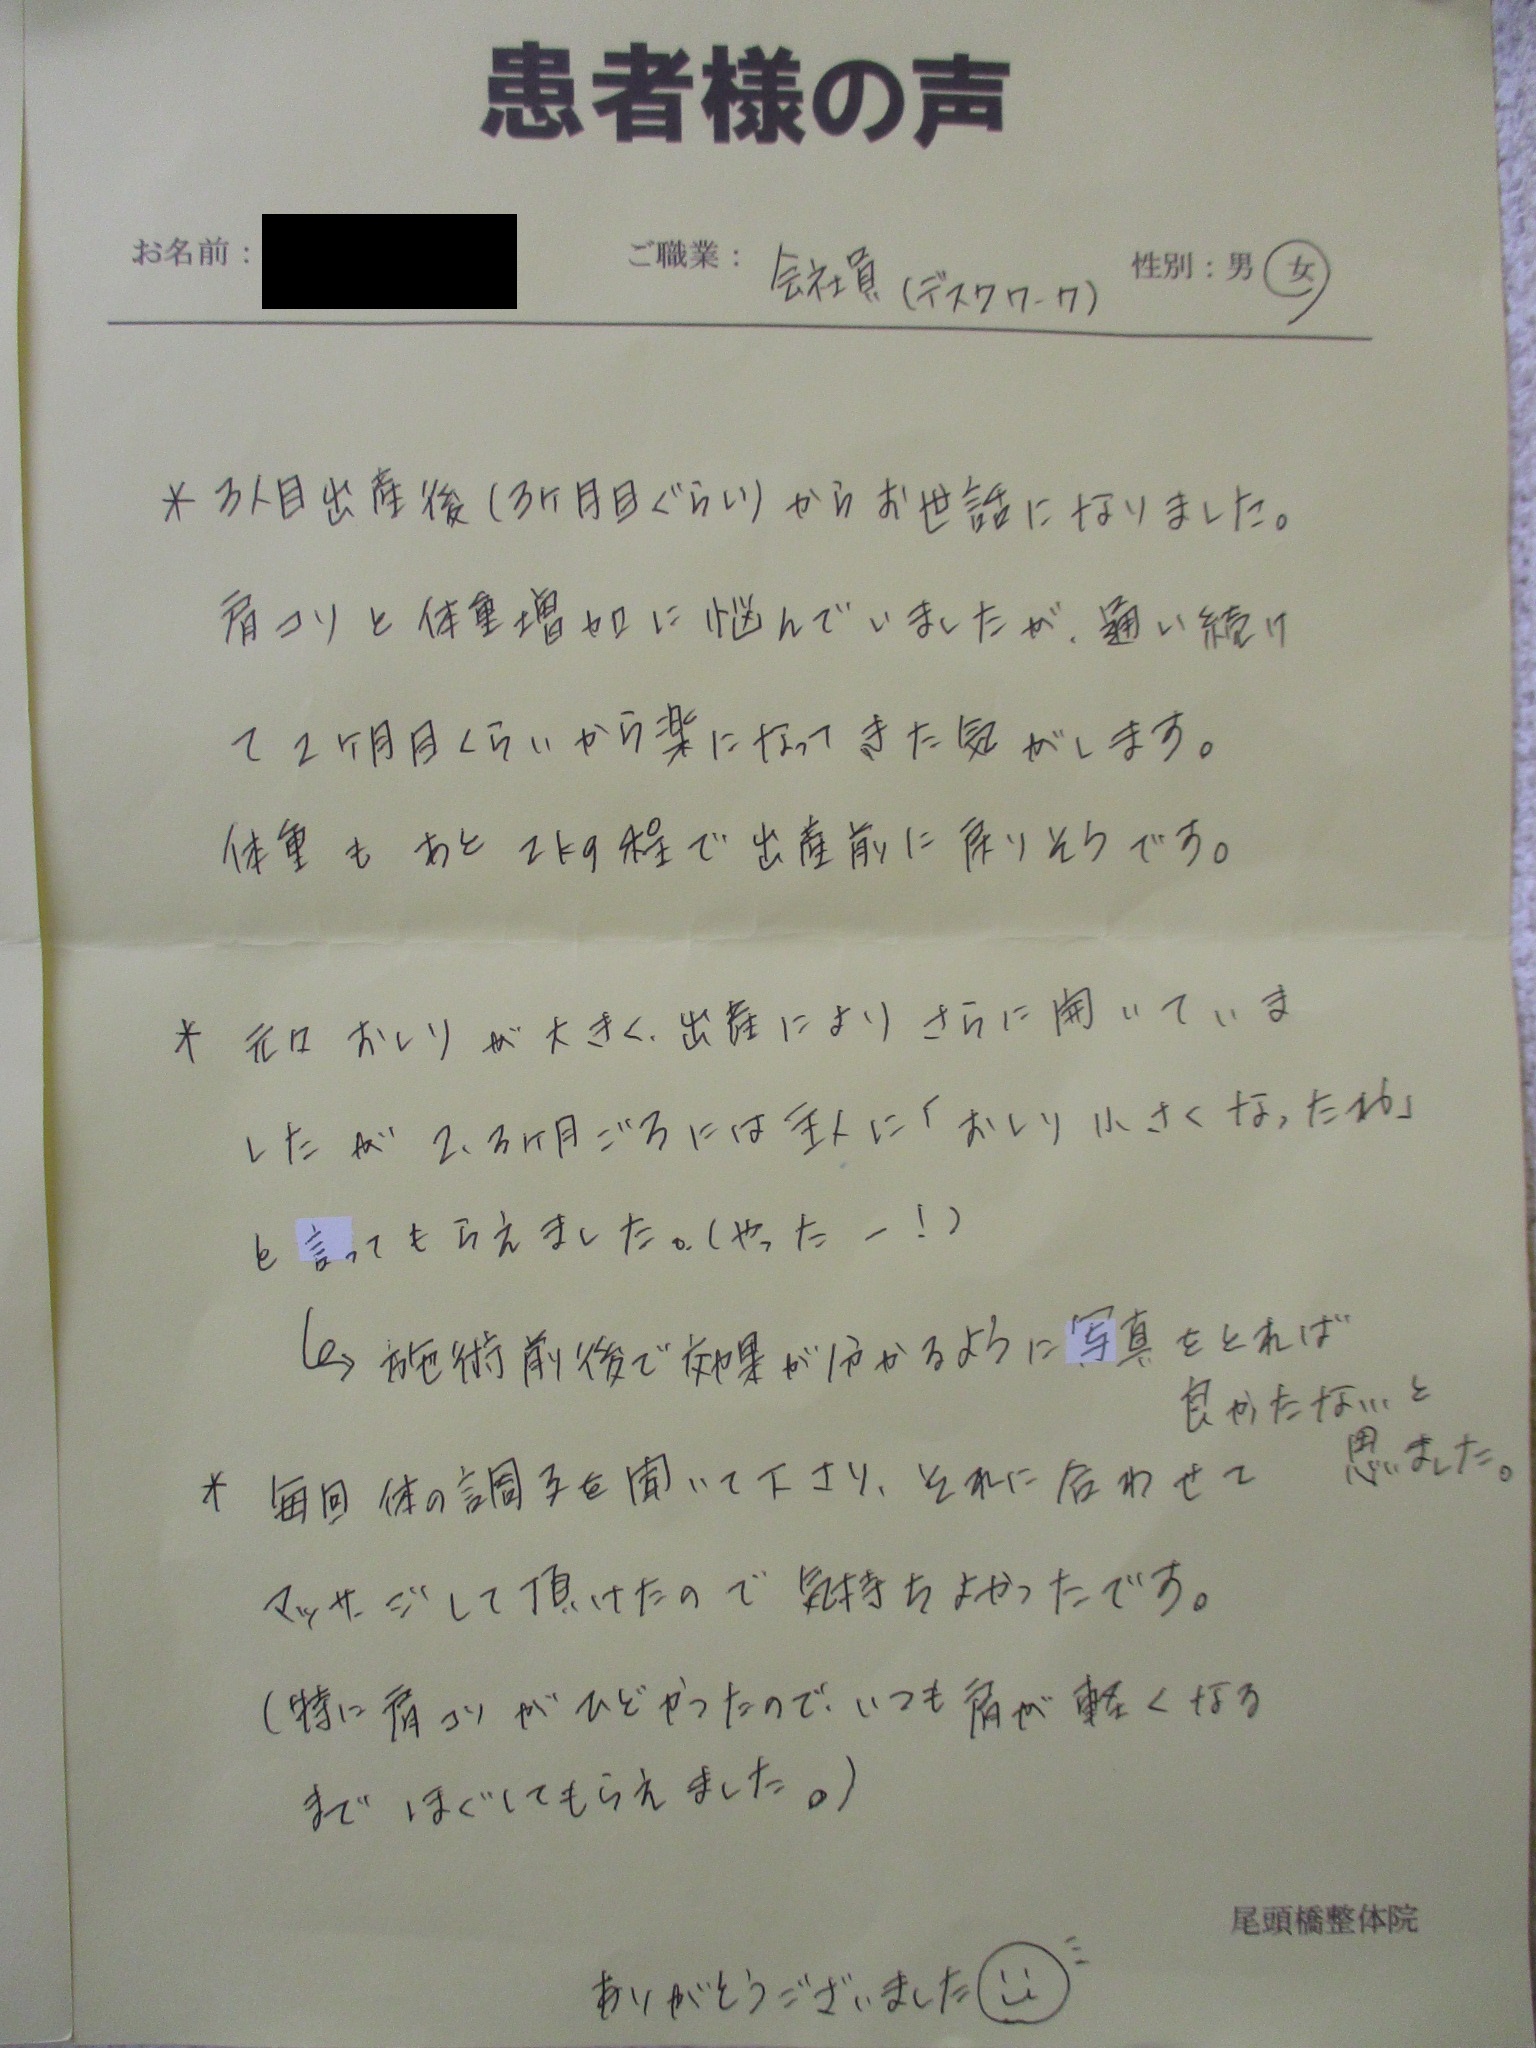 患者様の声
お名前： ご職業： 会社員(デスクワーク) 性別：男 女
* 3人目出産後(3ケ月目ぐらい)からお世話になりました。
肩コリと体重増加に悩んでいましたが、通い続け
て2ケ月目くらいから楽になってきた気がします。
体重もあと2kg程で出産前に戻りそうです。
* 元々おしりが大きく、出産によりさらに開いていま
したが2、3ケ月ごろには主人に「おしり小さくなったね」
と言ってもらえました。(やったー！)
↳ 施術前後で効果が分かるように写真をとれば
良かたな...と
思いました。
* 毎回体の調子を聞いて下さり、それに合わせて
マッサージして頂けたので気持ちよかったです。
(特に肩コリがひどかったので、いつも肩が軽くなる
までほぐしてもらえました。)
尾頭橋整体院
ありがとうございました